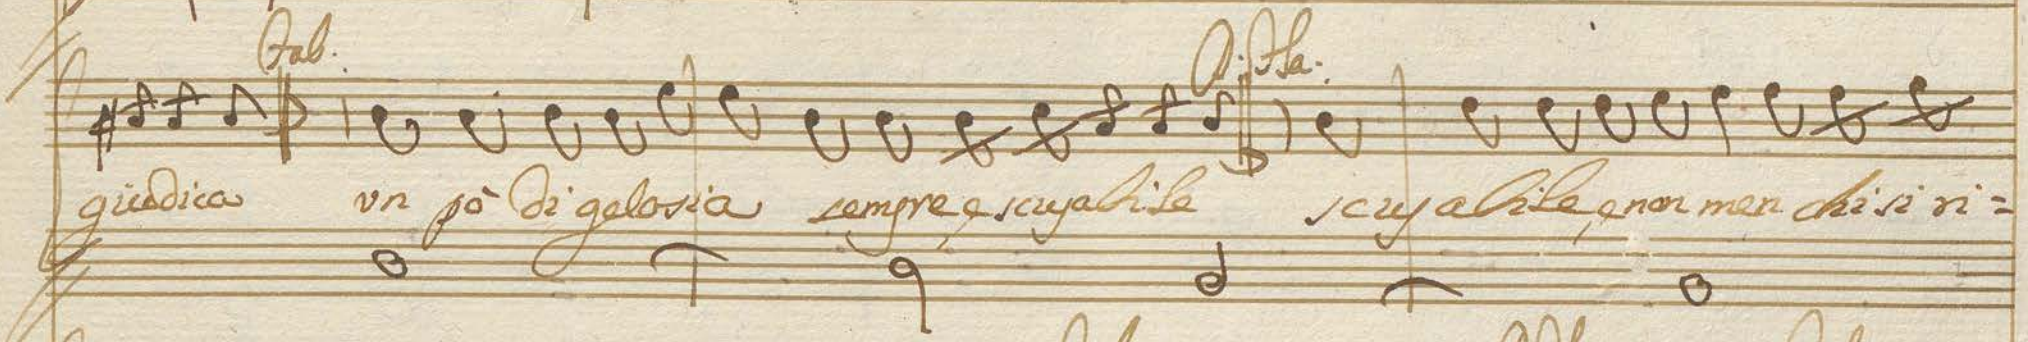 Fab.
giudica un pò di gelosia sempre è scusabile scusabile, e non men chi si ri=